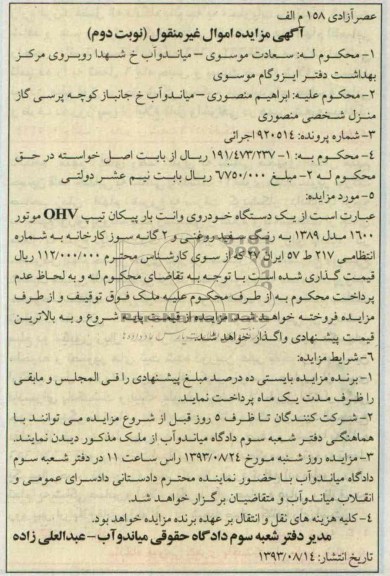 عصرآزادی ۱۵۸ م الف
آگهی مزایده اموال غیرمنقول (نوبت دوم)
۱- محکـوم لـه: سـعادت موسـوی – میانـدوآب خ شـهدا روبـروی مرکـز
بهداشـت دفتـر ایـزوگام موسـوی
۲- محکوم علیه: ابراهیم منصوری – میاندوآب خ جانباز کوچـه پرسـی گاز
منزل شـخصی منصوری
۳- شماره پرونده: ۹۲۰۵۱۴ اجرائی
۴- محکـوم بـه: ۱- ۱۹۱/۴۷۳/۲۳۷ ریـال از بابـت اصـل خواسـته در حـق
محکوم لـه ۲- مبلـغ ۶۷۵۰/۰۰۰ ریـال بابـت نیـم عشـر دولتـی
۵- مورد مزایده:
عبارت اسـت از یـک دسـتگاه خـودروی وانـت بار پیـکان تیـپ OHV موتور
۱۶۰۰ مدل ۱۳۸۹ بـه رنـگ سـفید روغنـی و ۲ گانـه سـوز کارخانـه بـه شـماره
انتظامـی ۲۱۷ ط ۵۷ ایران ۲۷ که از سـوی کارشناس محترم ۱۱۲/۰۰۰/۰۰۰ ریال
قیمـت گـذاری شـده اسـت بـا توجـه بـه تقاضـای محکـوم لـه و بـه لحـاظ عدم
پرداخـت محکـوم بـه از طـرف محکـوم علیـه ملـک فـوق توقیـف و از طـرف
مزایـده فروختـه خواهـد شـد مزایـده از قیمـت پایـه شـروع و بـه بالاتریـن
قیمـت پیشـنهادی واگـذار خواهـد شـد.
۶- شرایط مزایده:
۱- برنـده مزایـده بایسـتی ده درصـد مبلـغ پیشـنهادی را فـی المجلـس و مابقـی
را ظـرف مـدت یـک مـاه پرداخـت نمایـد.
۲- شـرکت کننـدگان تـا ظـرف ۵ روز قبـل از شـروع مزایـده مـی تواننـد بـا
هماهنگـی دفتـر شـعبه سـوم دادگاه میانـدوآب از ملـک مذکـور دیـدن نماینـد.
۳- مزایـده روز شـنبه مـورخ ۱۳۹۳/۰۸/۲۴ راس سـاعت ۱۱ در دفتر شـعبه سـوم
دادگاه میانـدوآب بـا حضـور نماینـده محتـرم دادسـتانی دادسـرای عمومـی و
انقـلاب میانـدوآب و متقاضیـان برگـزار خواهـد شـد.
۴- کلیه هزینه های نقل و انتقال بر عهده برنده مزایده خواهد بود.
مدیر دفتر شعبه سوم دادگاه حقوقی میاندوآب – عبدالعلی زاده
تاریخ انتشار: ۱۳۹۳/۰۸/۱۴